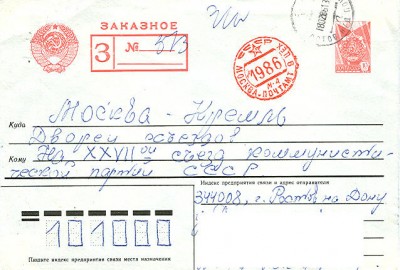 ЗАКАЗНОЕ
З № 513
СССР
1986
МОСКВА-ПОЧТАМТ
Куда Москва - Кремль
Дворец съездов
Кому На XXVII ой съезд коммунисти-
ческой партии СССР
Индекс предприятия связи и адрес отправителя
344008, г. Ростов на Дону
101000
Пишите индекс предприятия связи места назначения